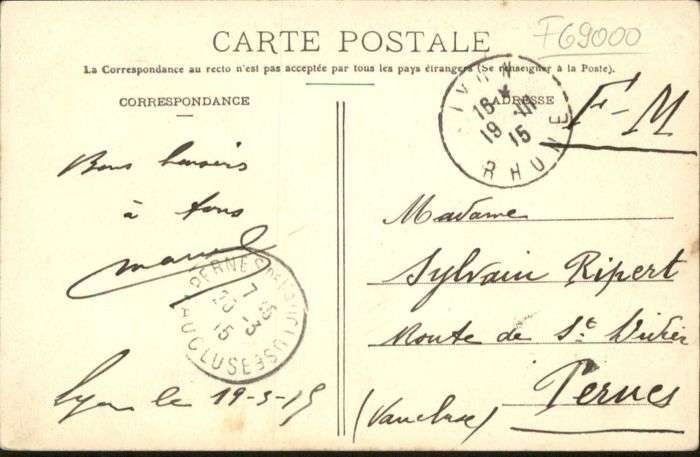 F69000
CARTE POSTALE
La Correspondance au recto n'est pas acceptée par tous les pays étrangers (Se renseigner à la Poste).
CORRESPONDANCE
ADRESSE
F-M
RHONE
19 15
Bons baisers
à tous
Marcel
PERNES
VAUCLUSE
15
Lyon le 19-3-15
Madame
Sylvain Ripert
Route de St
Pernes
(Vaucluse)